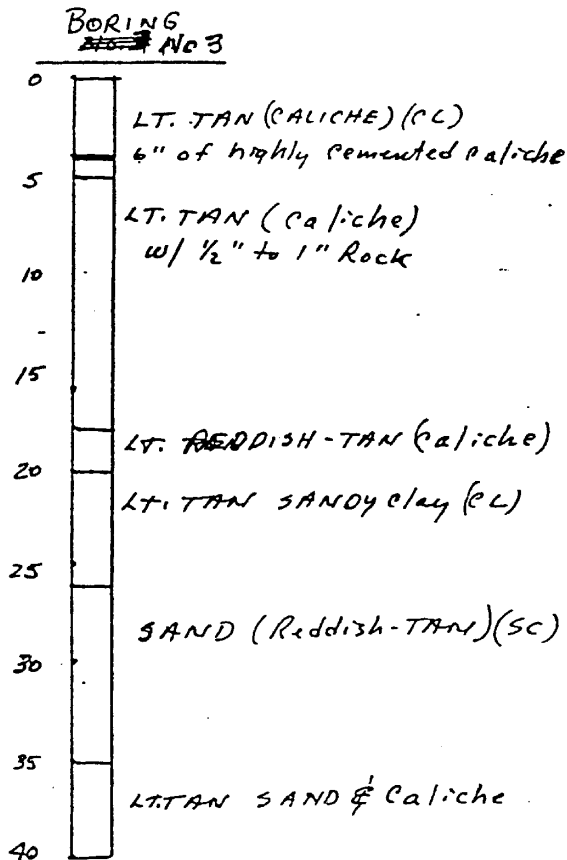 BORING
No 3
0
LT. TAN (CALICHE) (CL)
6" of highly Cemented Caliche
5
LT. TAN (Caliche)
w/ ½" to 1" Rock
10
15
LT. REDDISH-TAN (Caliche)
20
LT. TAN SANDY Clay (CL)
25
SAND (Reddish-TAN) (SC)
30
35
LT. TAN SAND & Caliche
40